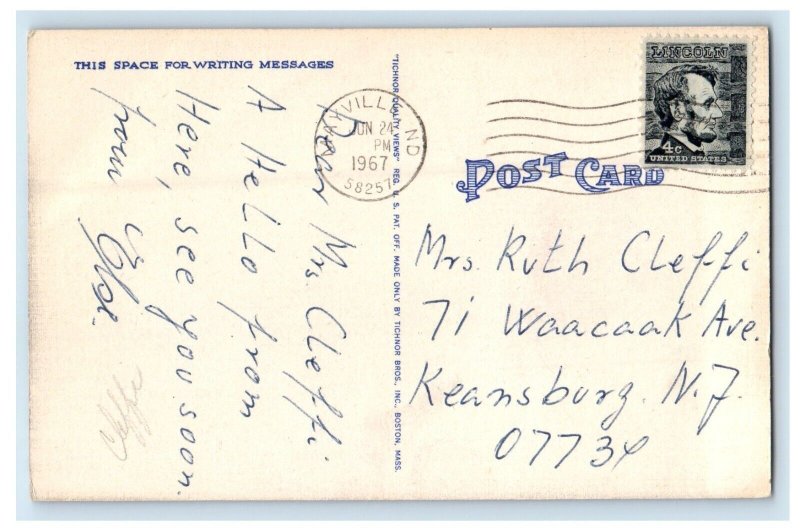 THIS SPACE FOR WRITING MESSAGES
Dear Mrs. Cleffi
A Hello from
Here, see you soon.
from
Cleffi
"TICHNOR QUALITY VIEWS" REG. U. S. PAT. OFF. MADE ONLY BY TICHNOR BROS., INC., BOSTON, MASS.
VILLE ND
JUN 24
PM
1967
58257
LINCOLN
4c
UNITED STATES
POST CARD
Mrs. Ruth Cleffi
71 Waacaak Ave.
Keansburg. N. J.
07734